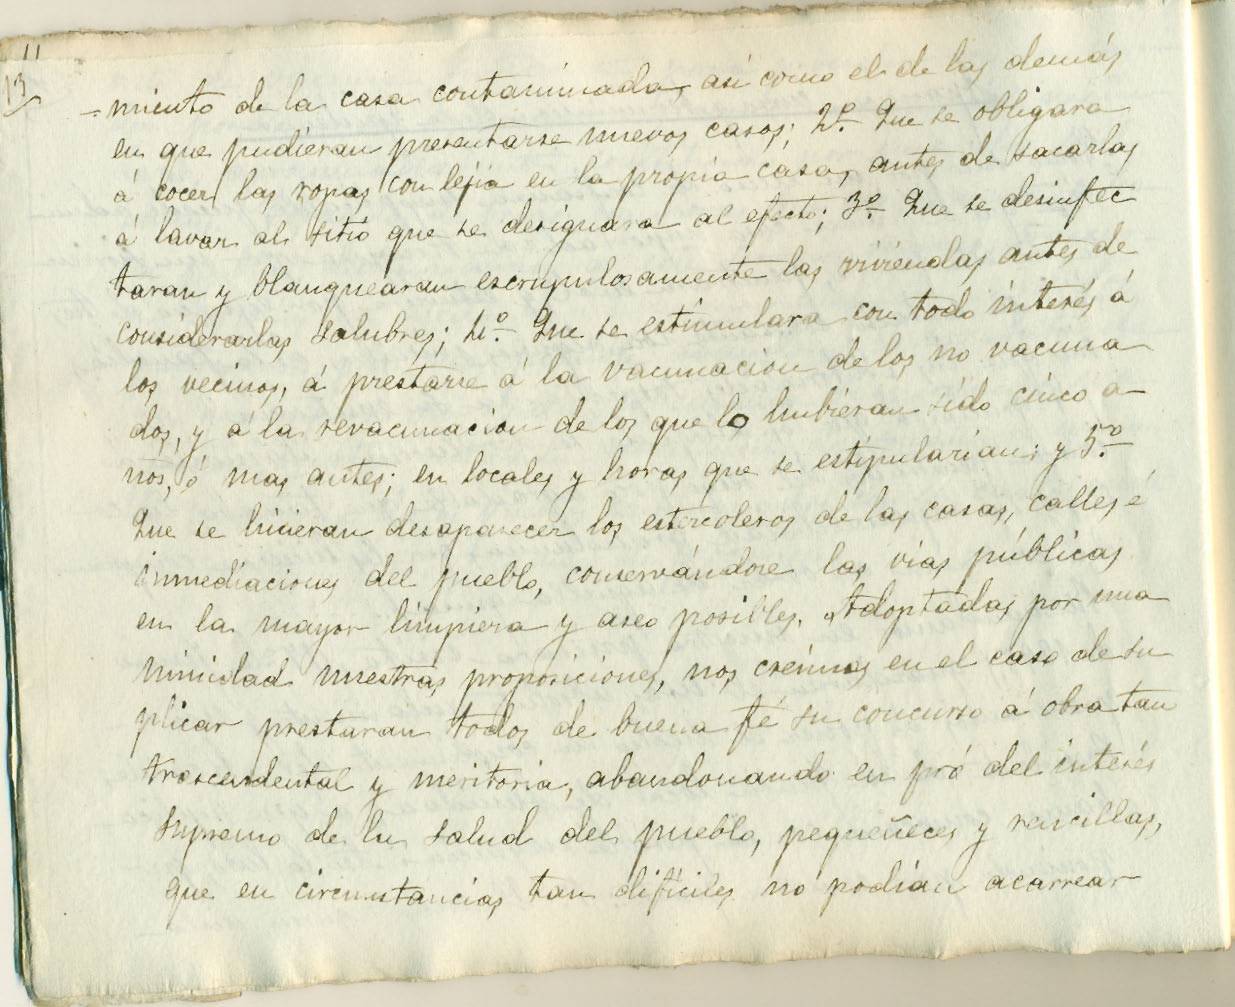 11
13
=miento de la casa contaminada, asi como el de las demás
en que pudieran presentarse nuevos casos; 2º. Que se obligara
á cocer las ropas con lejia en la propia casa, antes de sacarlas
á lavar al sitio que se designara al efecto; 3º. Que se desinfec
taran y blanquearan escrupulosamente las viviendas antes de
considerarlas salubres; 4º. Que se estimulara con todo interés á
los vecinos, á prestarse á la vacunacion de los no vacuna
dos, y á la revacunación de los que lo hubieran sido cinco a-
ños, ó mas antes; en locales y horas que se estipularían; y 5º.
Que se hicieran desaparecer los estercoleros de las casas, calles é
inmediaciones del pueblo, conservándose las vias públicas
en la mayor limpieza y aseo posibles. Adoptadas por una
nimidad nuestras proposiciones, nos creimos en el caso de su
plicar prestaran todos de buena fé su concurso á obra tan
trascendental y meritoria, abandonando en pró del interés
supremo de la salud del pueblo, pequeñeces y rencillas,
que en circunstancias tan difíciles no podian acarrear